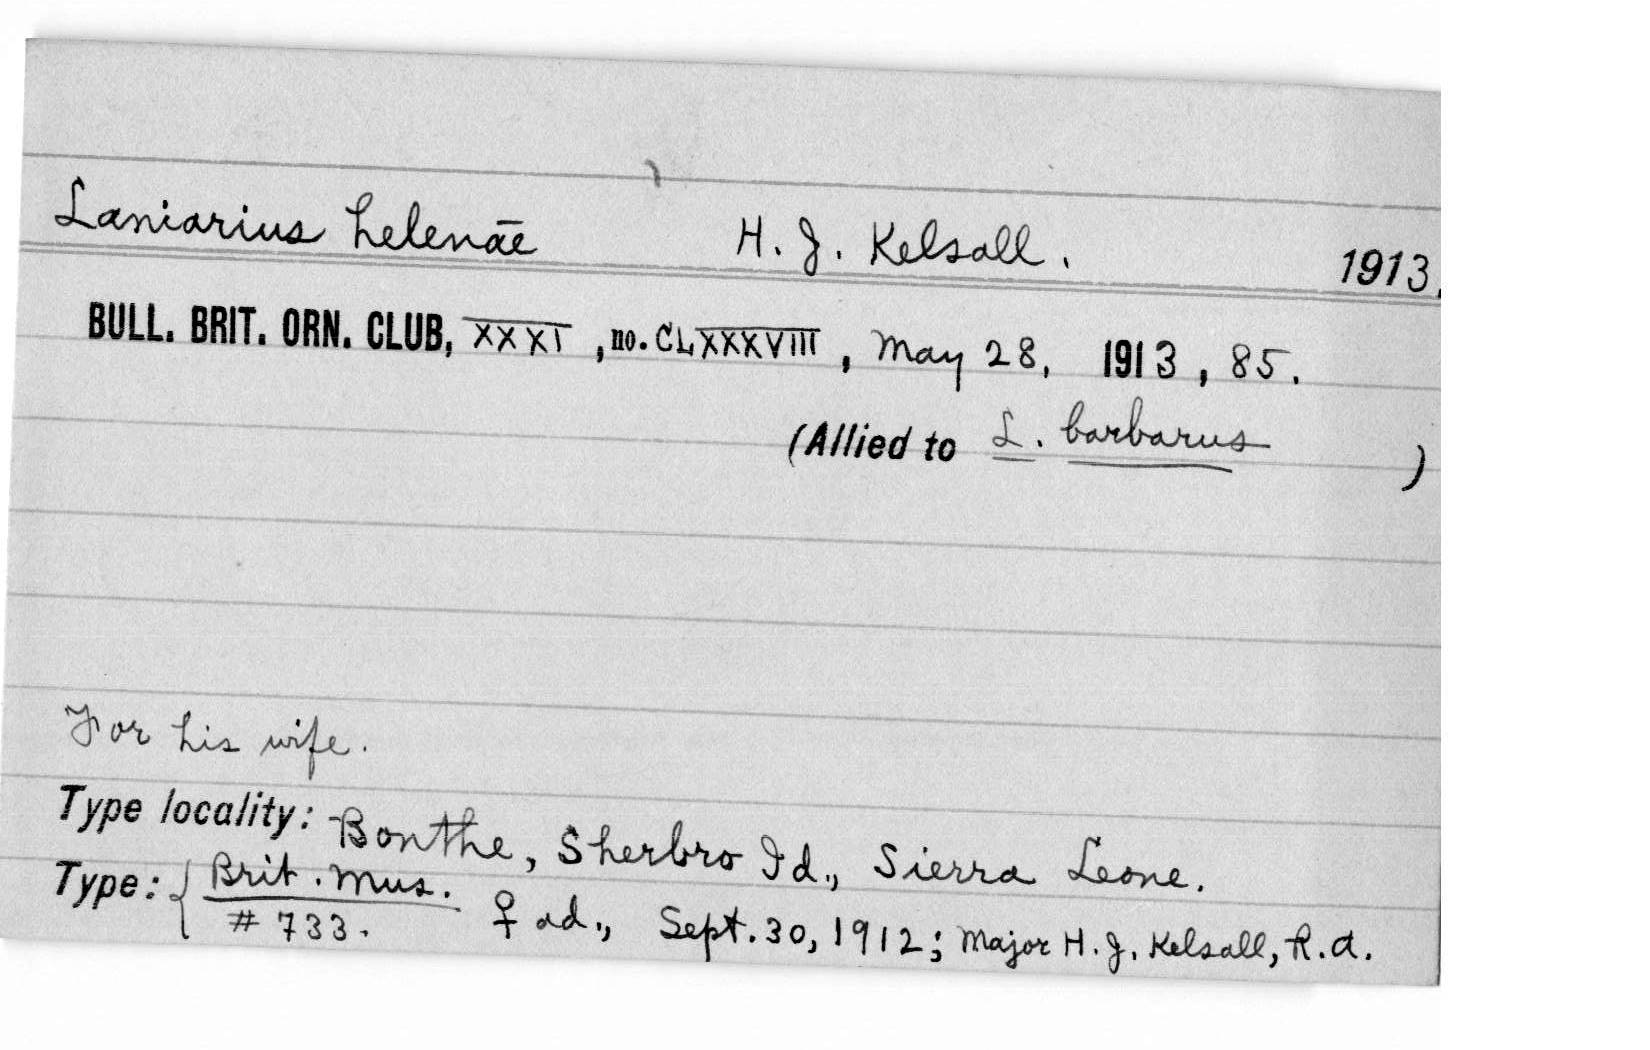 Laniarius helenāe H. J. Kelsall. 1913.
BULL. BRIT. ORN. CLUB, XXXI, no. CLXXXVIII, May 28, 1913, 85.
(Allied to L. barbarus )
For his wife.
Type locality: Bonthe, Sherbro Id., Sierra Leone.
Type: { Brit. Mus.
# 733. ♀ ad., Sept. 30, 1912; Major H. J. Kelsall, R.A.